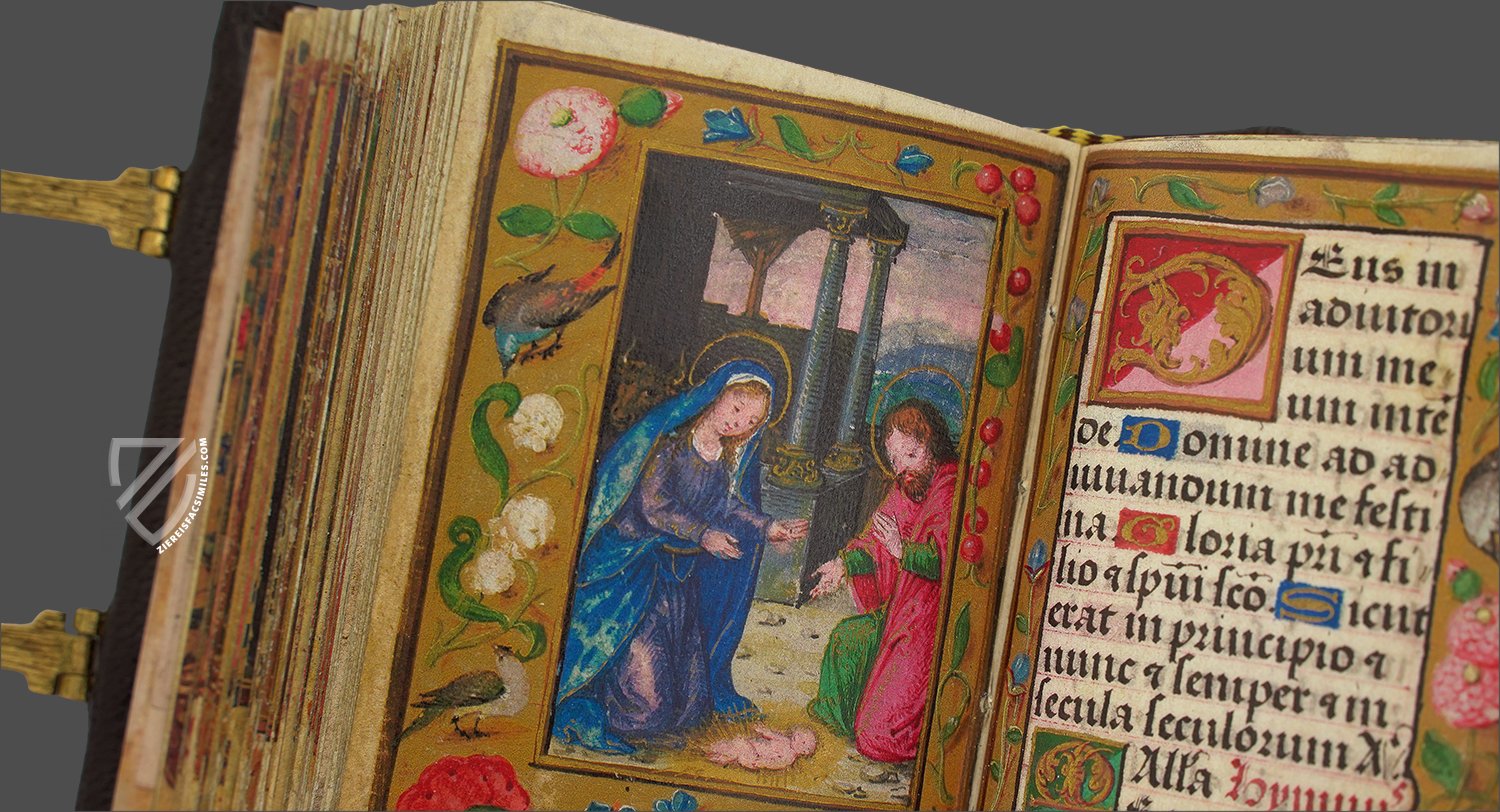 ZIEREISFACSIMILES.COM
Deus in
adiutori
um me
um inte
de Domine ad ad
iuuandum me festi
na Gloria pri & fi
lio & spui sco Sicut
erat in principio &
nunc & semper & in
secula seculorum A
Alla Hymnus